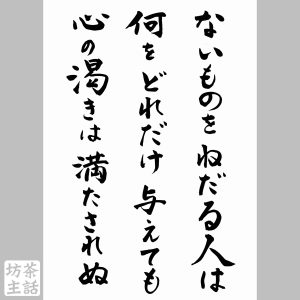 ないものをねだる人は
何をどれだけ与えても
心の渇きは満たされぬ
茶話
坊主